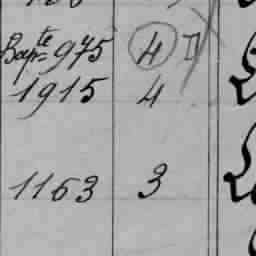 Bap^te 975 4 D
1915 4
1163 3